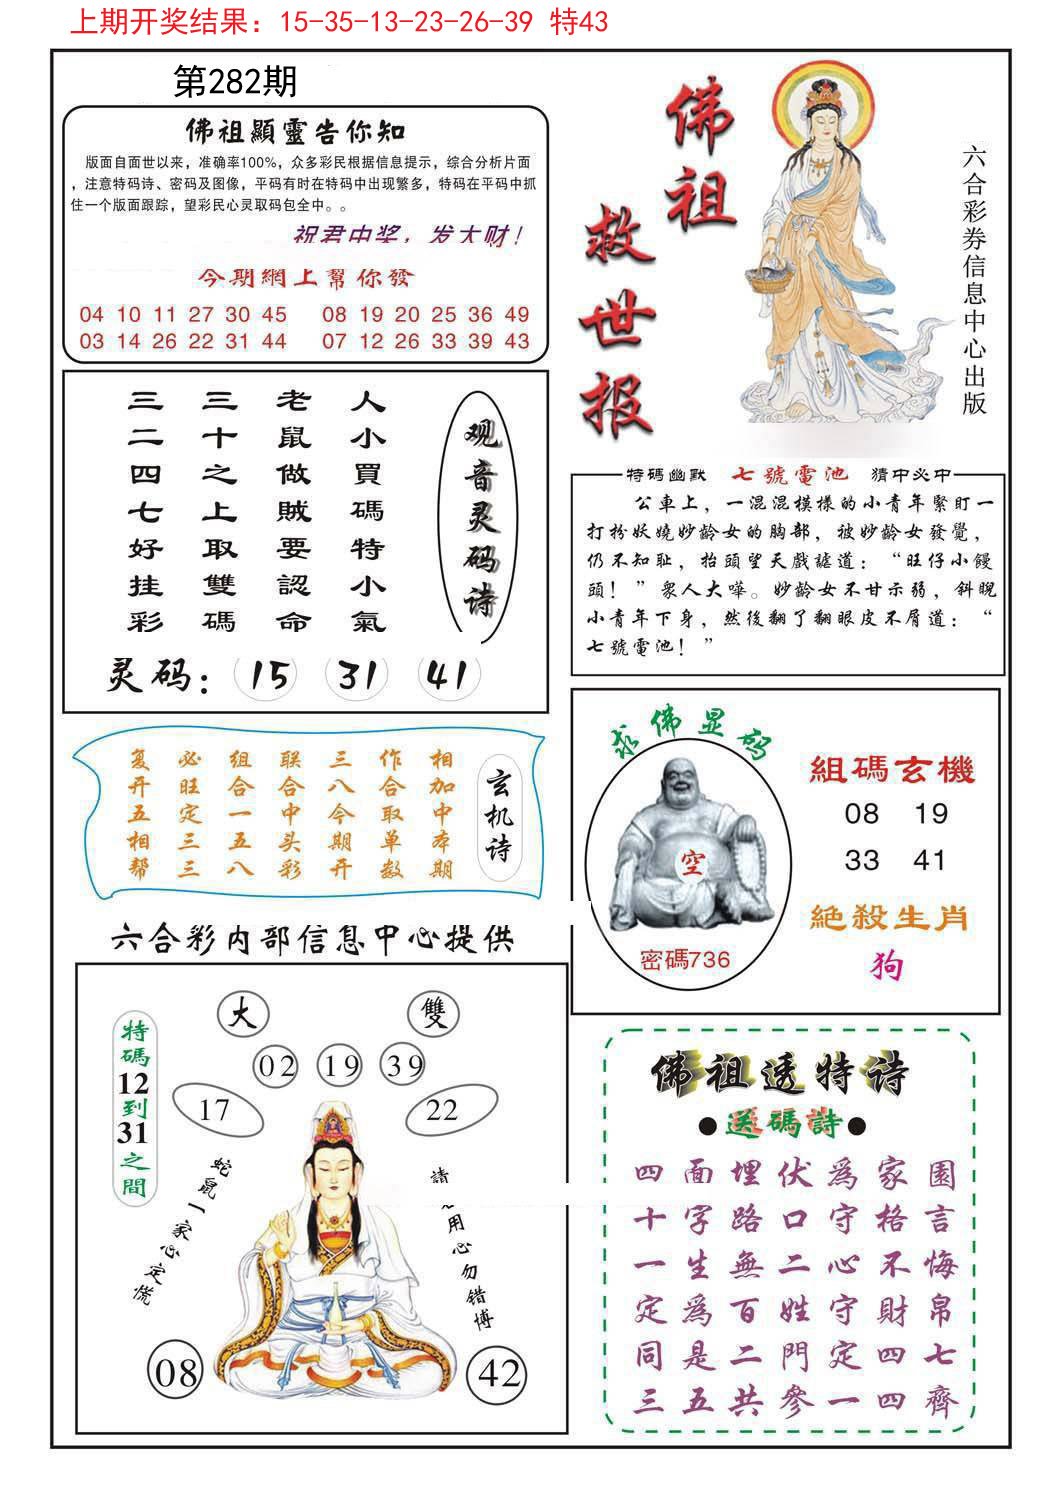 上期开奖结果：15-35-13-23-26-39 特43
第282期
佛祖顯靈告你知
版面自面世以来，准确率100%，众多彩民根据信息提示，综合分析片面
，注意特码诗、密码及图像，平码有时在特码中出现繁多，特码在平码中抓
住一个版面跟踪，望彩民心灵取码包全中。。
祝君中奖，发大财！
今期網上幫你發
04 10 11 27 30 45 08 19 20 25 36 49
03 14 26 22 31 44 07 12 26 33 39 43
佛祖
救世报
六合彩券信息中心出版
观音灵码诗
人小買碼特小氣
老鼠做賊要認命
三十之上取雙碼
三二四七好挂彩
灵码：15 31 41
特码幽默 七號電池 猜中必中
公車上，一混混模樣的小青年緊盯一
打扮妖嬈妙齡女的胸部，被妙齡女發覺，
仍不知耻，抬頭望天戲謔道：“旺仔小饅
頭！”衆人大嘩。妙齡女不甘示弱，斜睨
小青年下身，然後翻了翻眼皮不屑道：“
七號電池！”
玄机诗
相加中本期
作合取单数
三八今期开
联合中头彩
组合一五八
必旺定三三
复开五相帮
求佛显码
空
密碼736
組碼玄機
08 19
33 41
絕殺生肖
狗
六合彩内部信息中心提供
大 雙
02 19 39
17 22
特碼12到31之間
蛇鼠一家心定慌
請 用心勿错博
08 42
佛祖透特诗
●送碼詩●
四面埋伏為家園
十字路口守格言
一生無二心不悔
定為百姓守財帛
同是二門定四七
三五共參一四齊